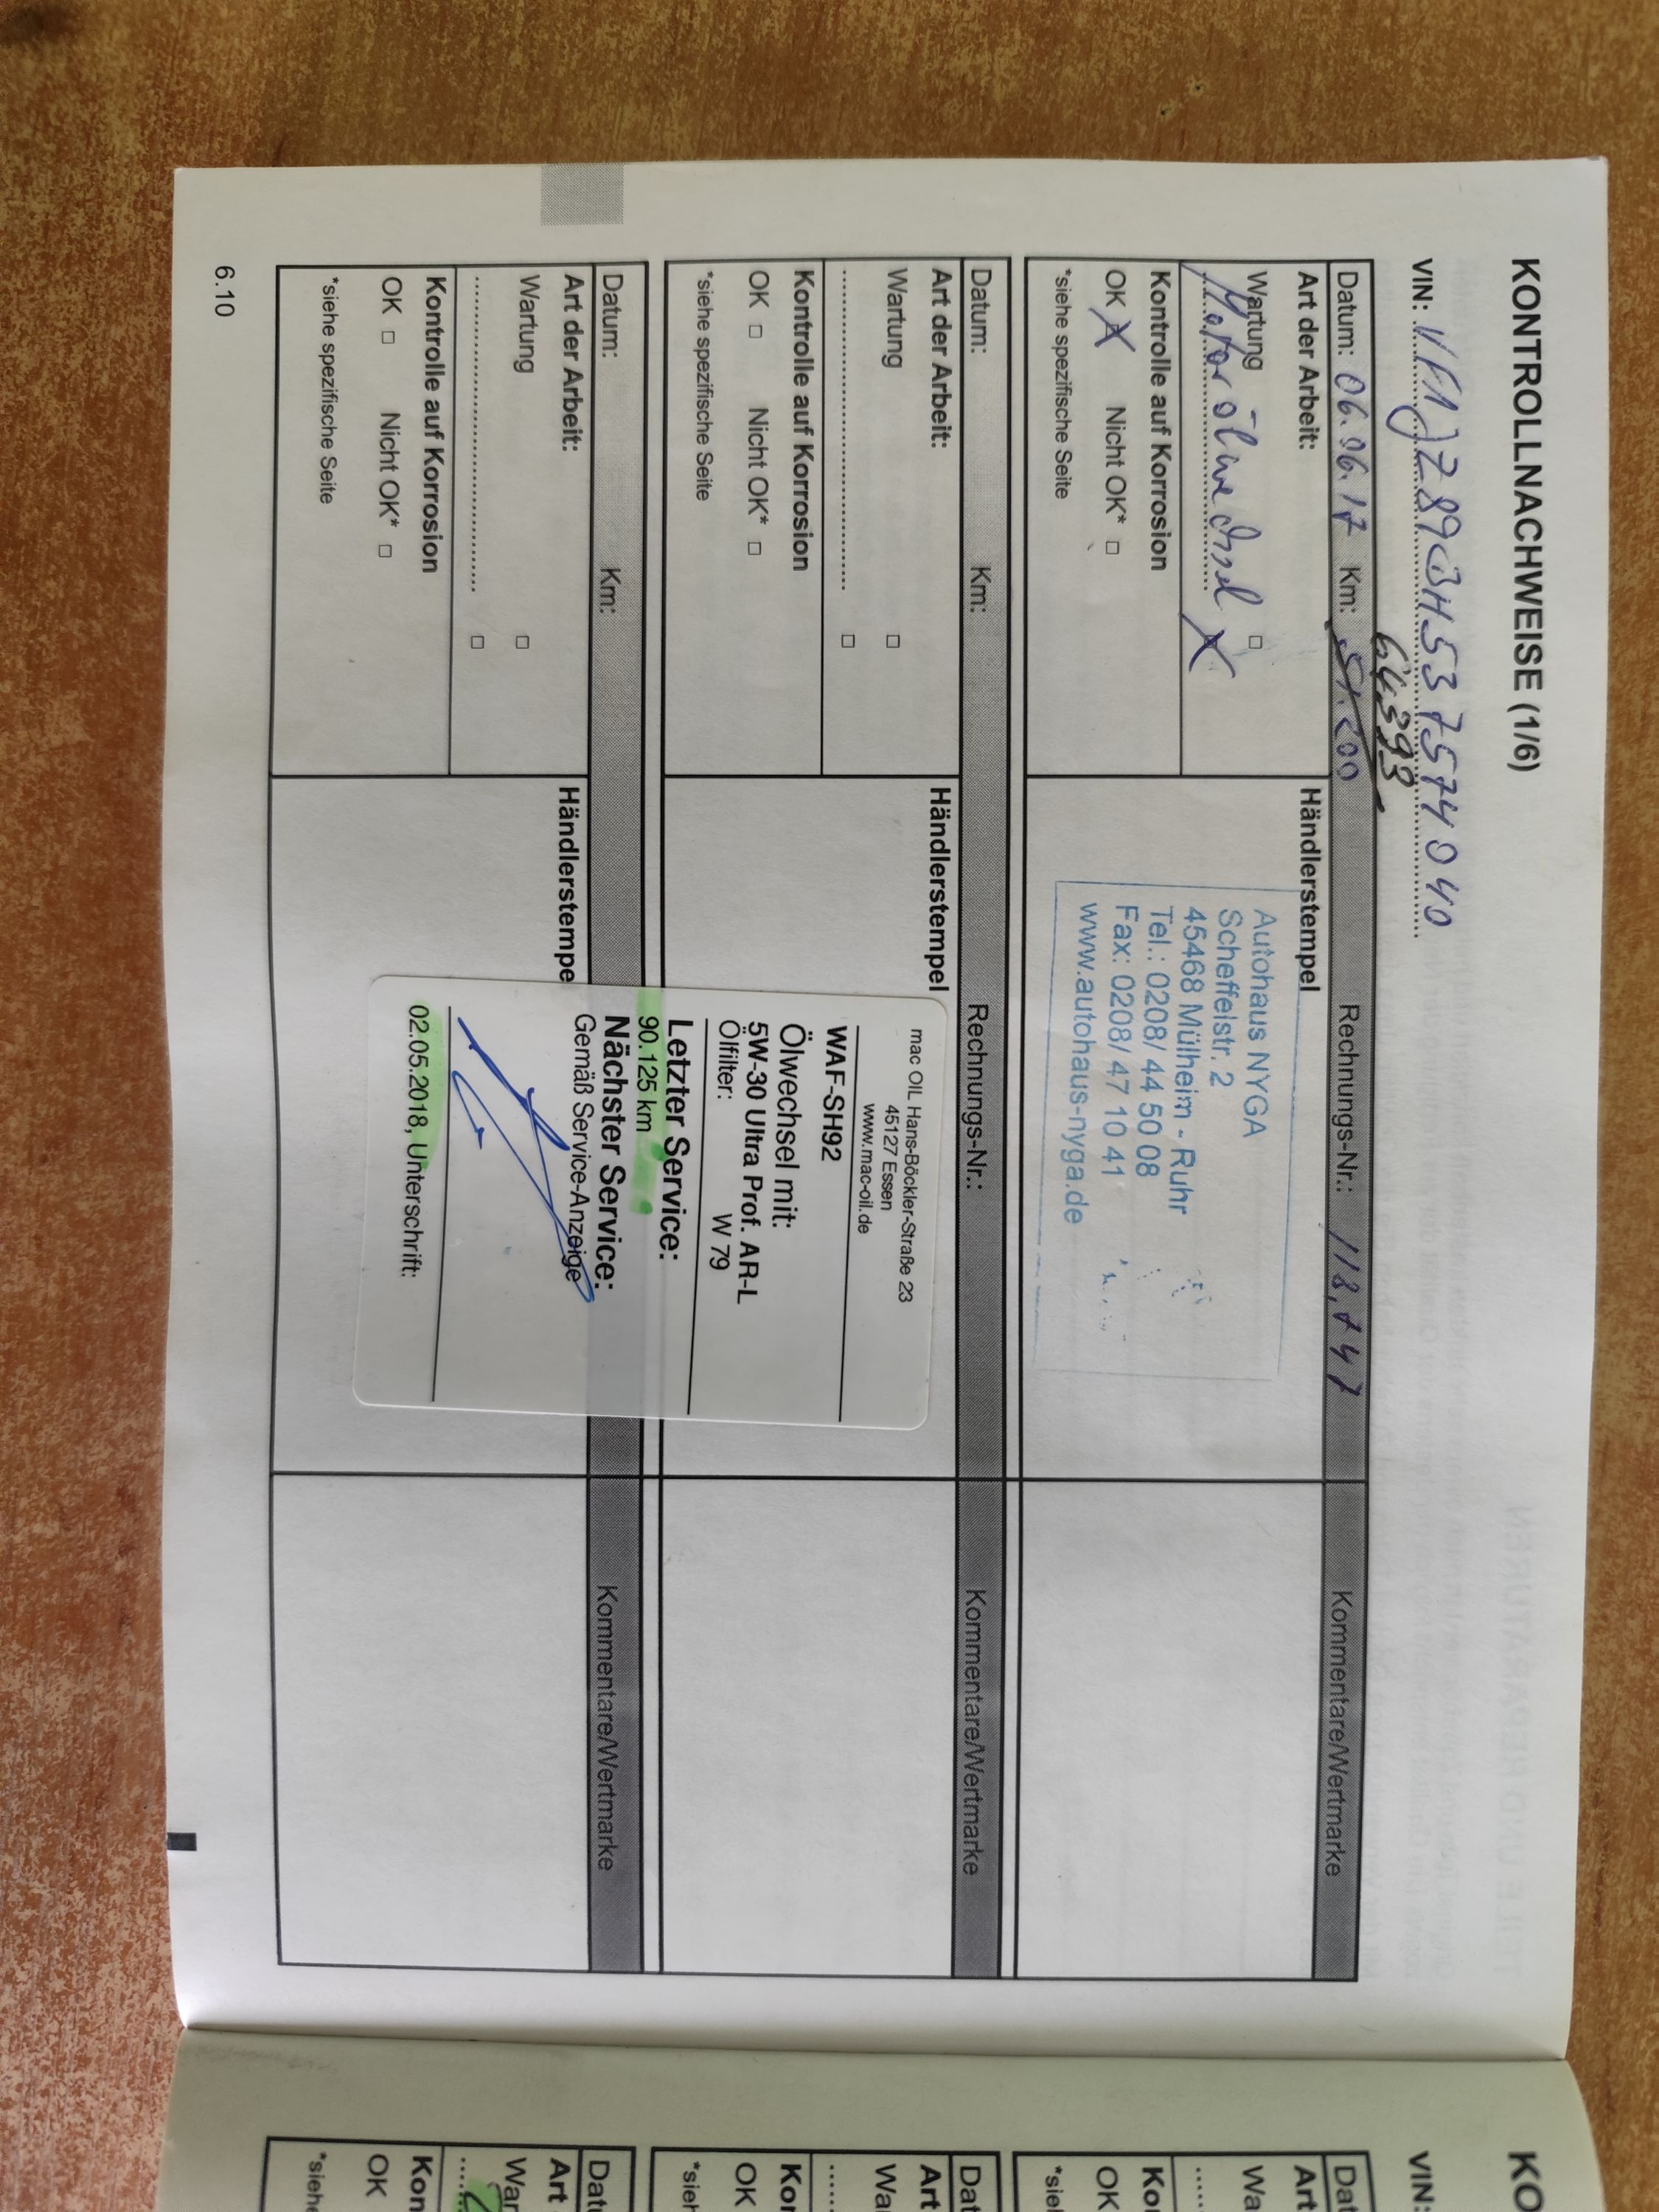 KONTROLLNACHWEISE (1/6)
VIN: VF1JZ89C3H53757404 0
64.393
Datum: 06.06.17 Km: 51.200 Rechnungs-Nr.: 118,747 Kommentare/Wertmarke
Art der Arbeit:
Wartung □
Motorölwechsel X
Kontrolle auf Korrosion
OK X Nicht OK* □
*siehe spezifische Seite
Händlerstempel
Autohaus NYGA
Scheffelstr. 2
45468 Mülheim - Ruhr
Tel.: 0208/ 44 50 08
Fax: 0208/ 47 10 41
www.autohaus-nyga.de
Datum: Km: Rechnungs-Nr.: Kommentare/Wertmarke
Art der Arbeit:
Wartung □
.......................................... □
Kontrolle auf Korrosion
OK □ Nicht OK* □
*siehe spezifische Seite
Händlerstempel
mac OIL Hans-Böckler-Straße 23
45127 Essen
www.mac-oil.de
WAF-SH92
Ölwechsel mit:
5W-30 Ultra Prof. AR-L
Ölfilter: W 79
Letzter Service:
90.125 km
Nächster Service:
Gemäß Service-Anzeige
02.05.2018, Unterschrift:
Datum: Km: Kommentare/Wertmarke
Art der Arbeit:
Wartung □
.......................................... □
Kontrolle auf Korrosion
OK □ Nicht OK* □
*siehe spezifische Seite
Händlerstempe
6.10
KO
VIN:
Dat
Art
Wa
Ko
OK
*siel
Dat
Art
Wa
Kor
OK
*sieh
Dat
Art
War
Kon
OK
*siehe